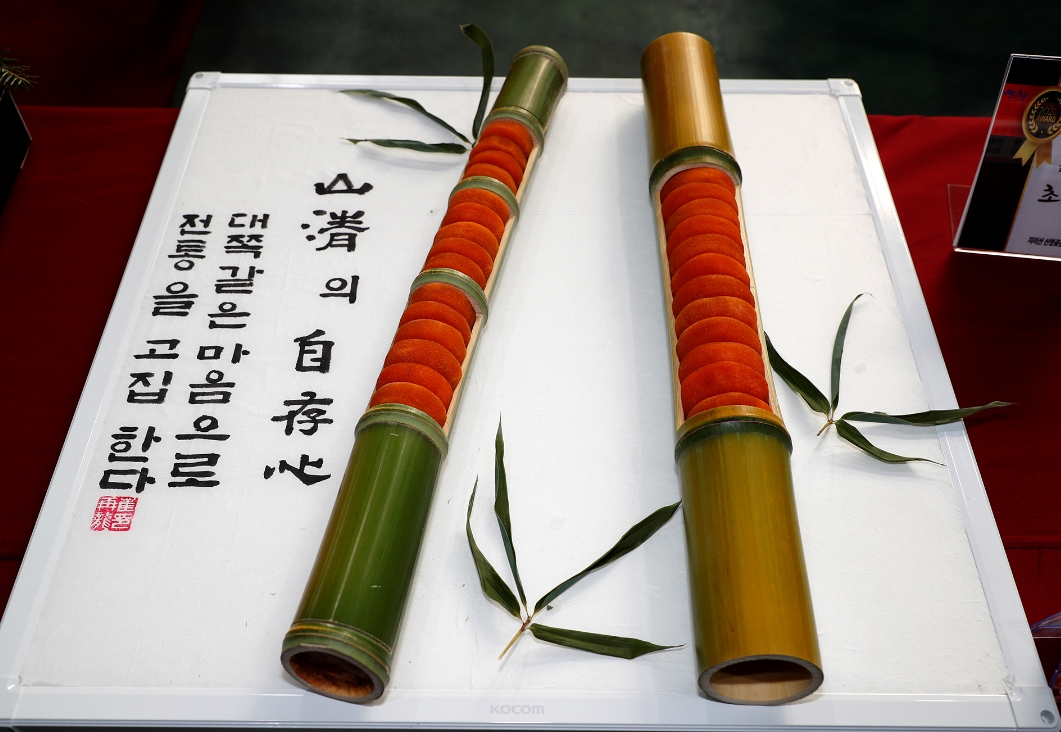 山淸의 自存心
대쪽같은마음으로
전통을 고집 한다
KOCOM